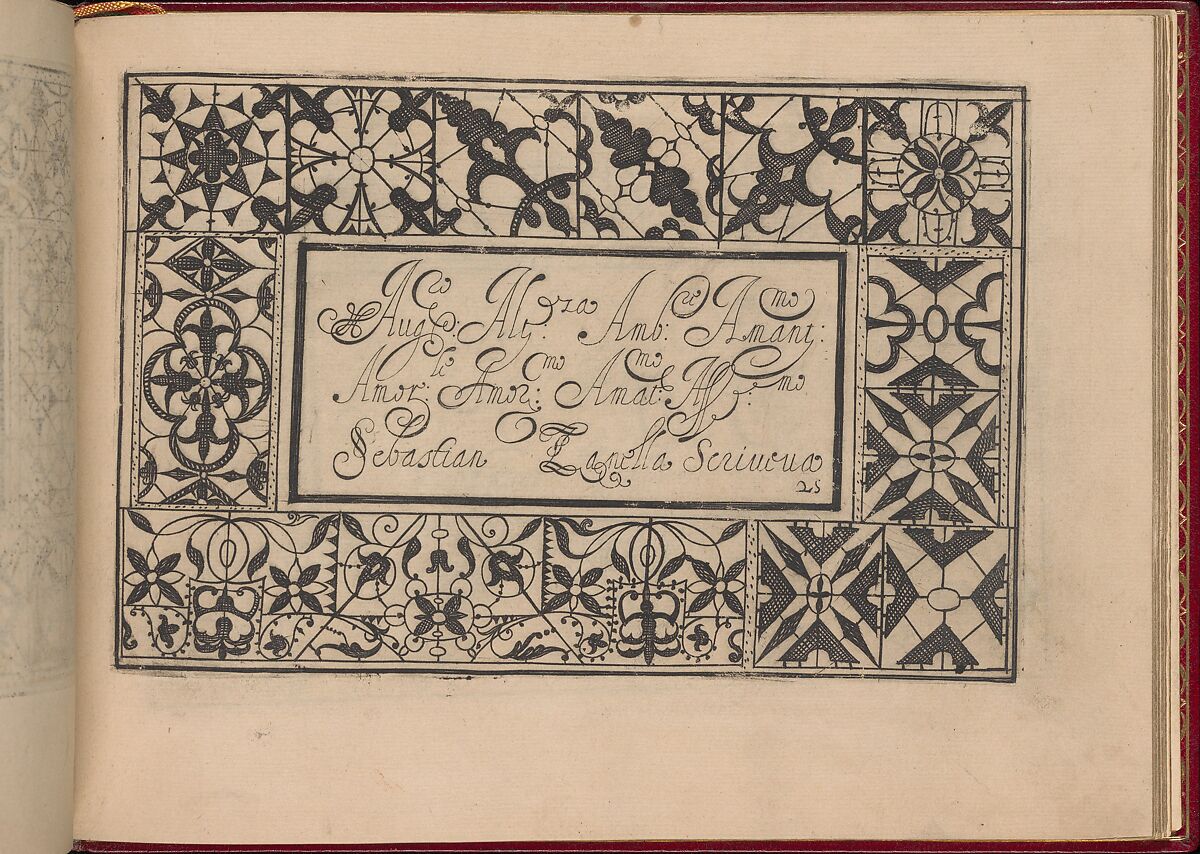 Aug.^mo: Alt^ezza Amb^re: Amant^mo:
Amor^le: Amor^mo: Amat^mo: Aff^mo:
Sebastian Zanella Scriueua
25